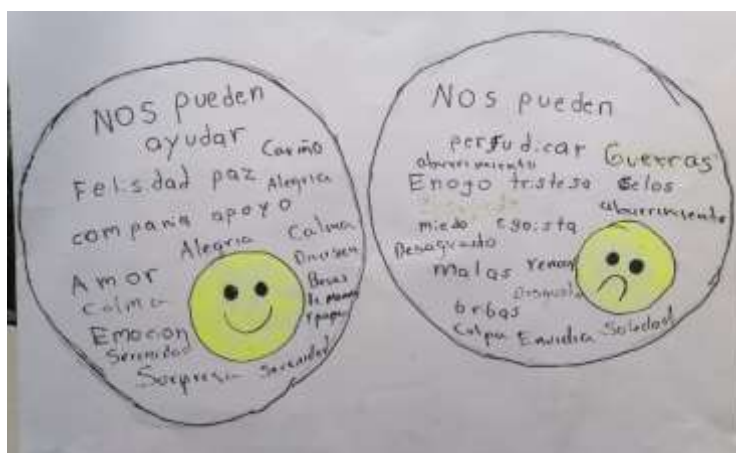 NOS pueden
ayudar
Cariño
Felisdad paz Alegria
compania apoyo
Alegria Calma
Amor
Calma
Besos
de Mama
y papa
Emocion
Serenidad
Sorpresa Serenidad
NOS pueden
perjudicar
aburrimiento Guerras
Enogo tristesa Selos
aburrimiento
miedo Egoista
Desagrado
malas
Disgusto
Culpa Envidia Soledad